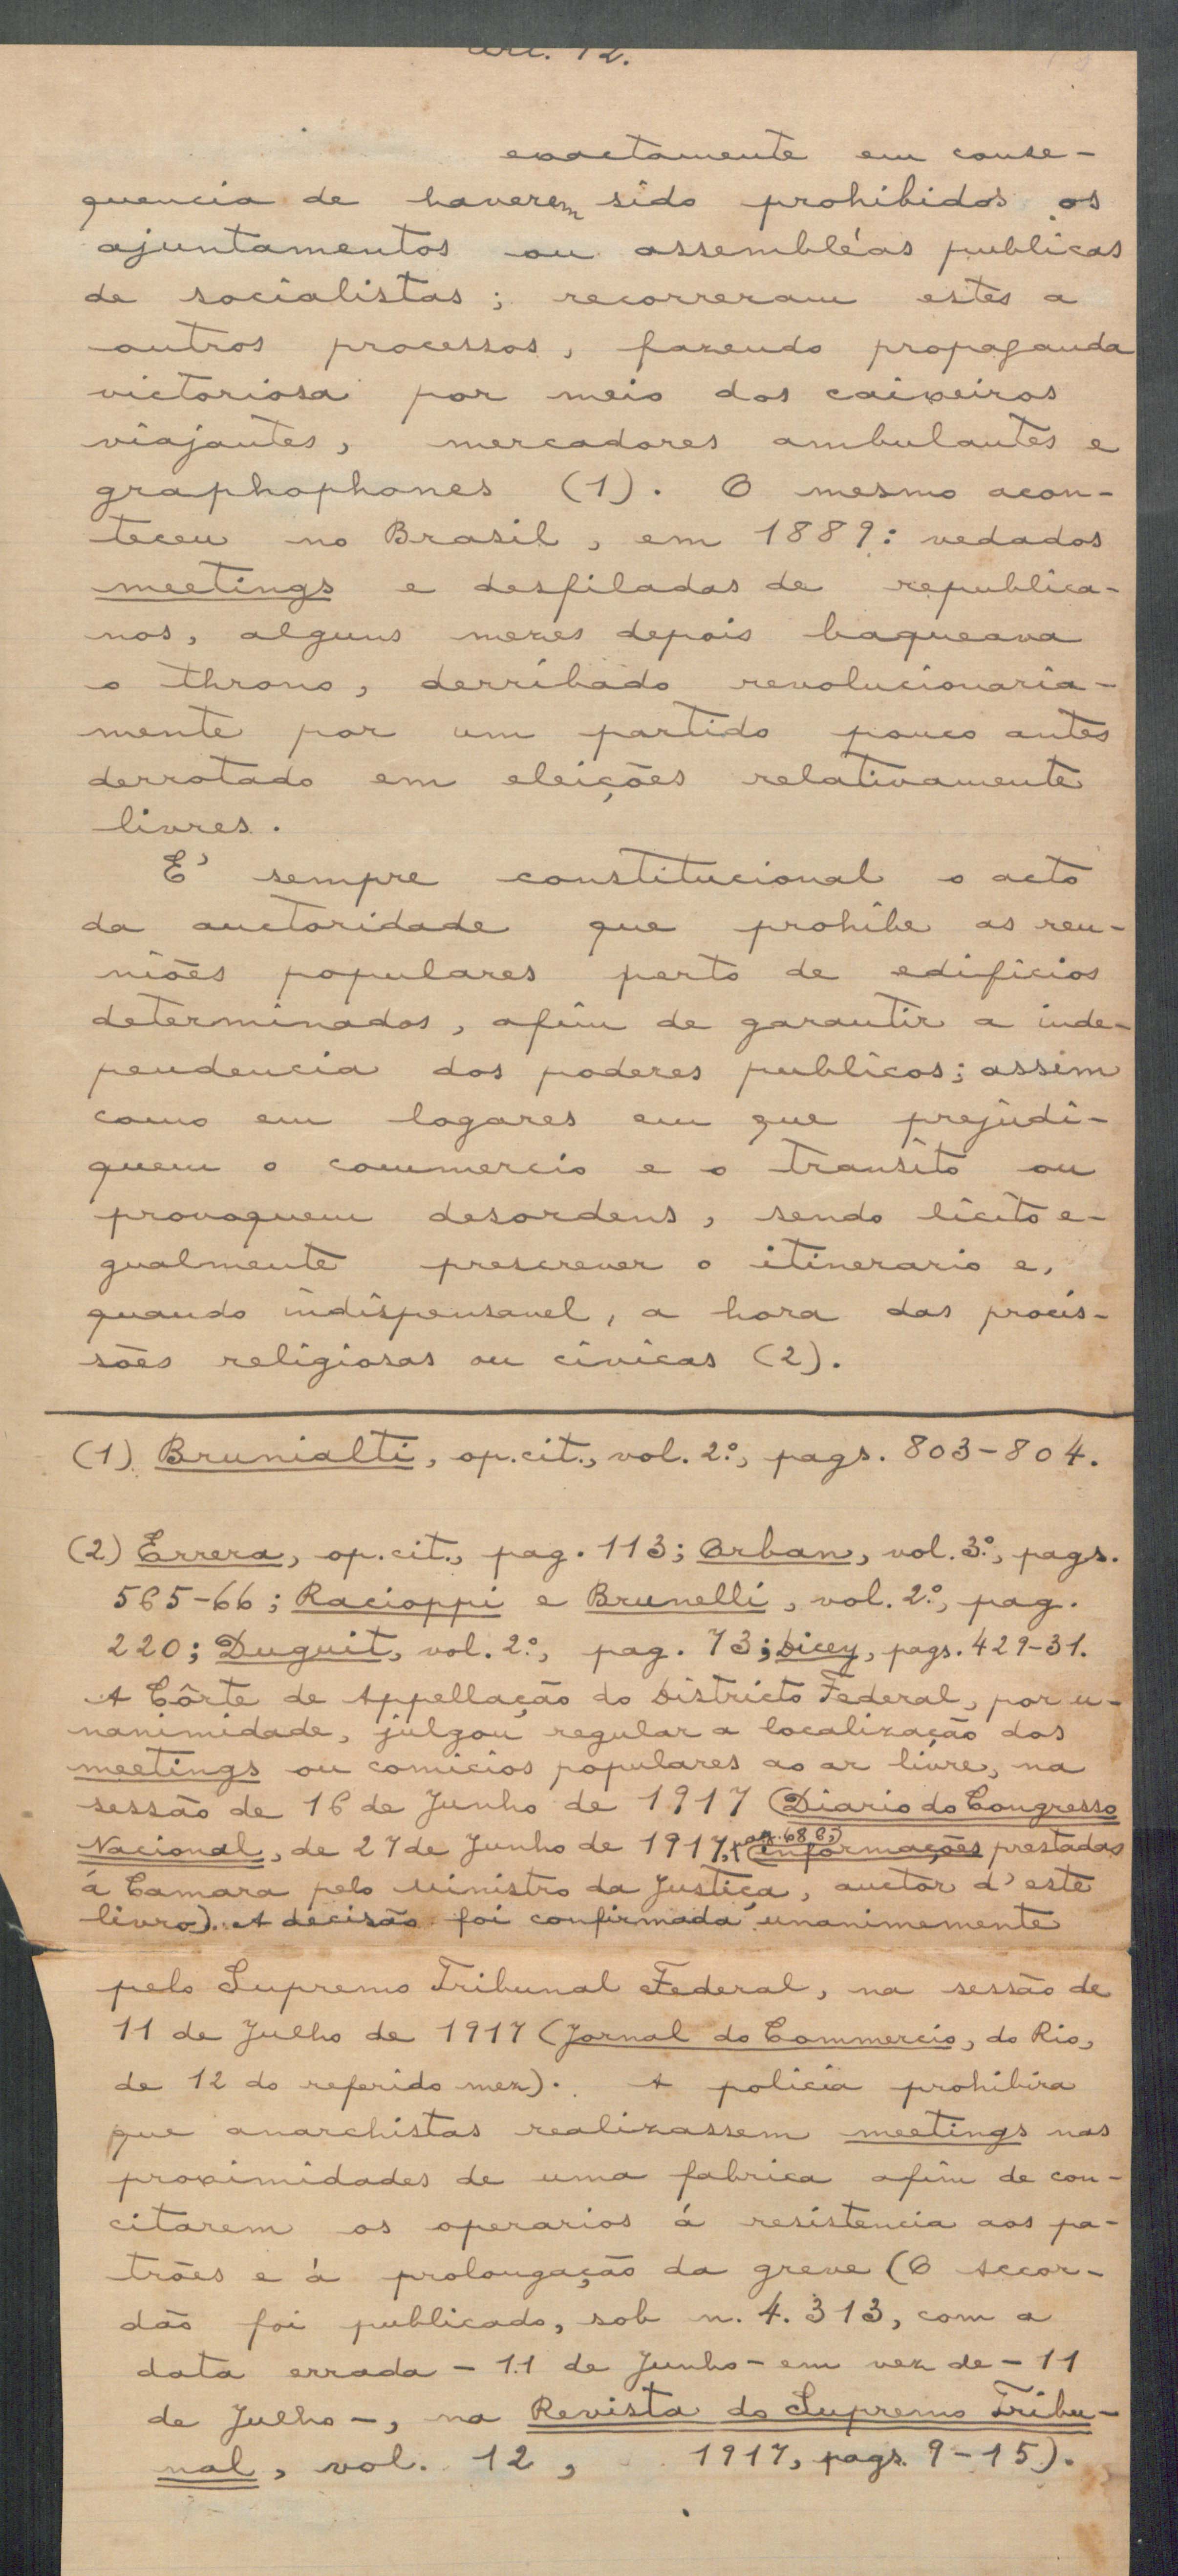 art. 12.
exactamente em conse-
quencia de haverem sido prohibidos os
ajuntamentos ou assembléas publicas
de socialistas; recorreram estes a
outros processos, fazendo propaganda
victoriosa por meio dos caixeiros
viajantes, mercadores ambulantes e
graphophones (1). O mesmo acon-
teceu no Brasil, em 1889: vedados
meetings e desfiladas de republica-
nos, alguns mezes depois baqueava
o throno, derribado revolucionaria-
mente por um partido pouco antes
derrotado em eleições relativamente
livres.
E' sempre constitucional o acto
da auctoridade que prohibe as reu-
niões populares perto de edificios
determinados, afim de garantir a inde-
pendencia dos poderes publicos; assim
como em logares em que prejudi-
quem o commercio e o transito ou
provoquem desordens, sendo licito e-
gualmente prescrever o itinerario e,
quando indispensavel, a hora das procis-
sões religiosas ou civicas (2).
(1) Brunialti, op. cit., vol. 2º, pags. 803-804.
(2) Errera, op. cit., pag. 113; Orban, vol. 3º, pags.
565-66; Racioppi e Brunelli, vol. 2º, pag.
220; Duguit, vol. 2º, pag. 73; Dicey, pags. 429-31.
A Côrte de Appellação do Districto Federal, por u-
nanimidade, julgou regular a localização dos
meetings ou comicios populares ao ar livre, na
sessão de 16 de Junho de 1917 (Diario do Congresso
Nacional, de 27 de Junho de 1917, pag. 686; informações prestadas
á Camara pelo Ministro da Justiça, auctor d'este
livro). A decisão foi confirmada unanimemente
pelo Supremo Tribunal Federal, na sessão de
11 de Julho de 1917 (Jornal do Commercio, do Rio,
de 12 do referido mez). A policia prohibira
que anarchistas realizassem meetings nas
proximidades de uma fabrica afim de con-
citarem os operarios á resistencia aos pa-
trões e á prolongação da greve (O accor-
dão foi publicado, sob n. 4.313, com a
data errada - 11 de Junho - em vez de - 11
de Julho -, na Revista do Supremo Tribu-
nal, vol. 12, 1917, pags. 9-15).